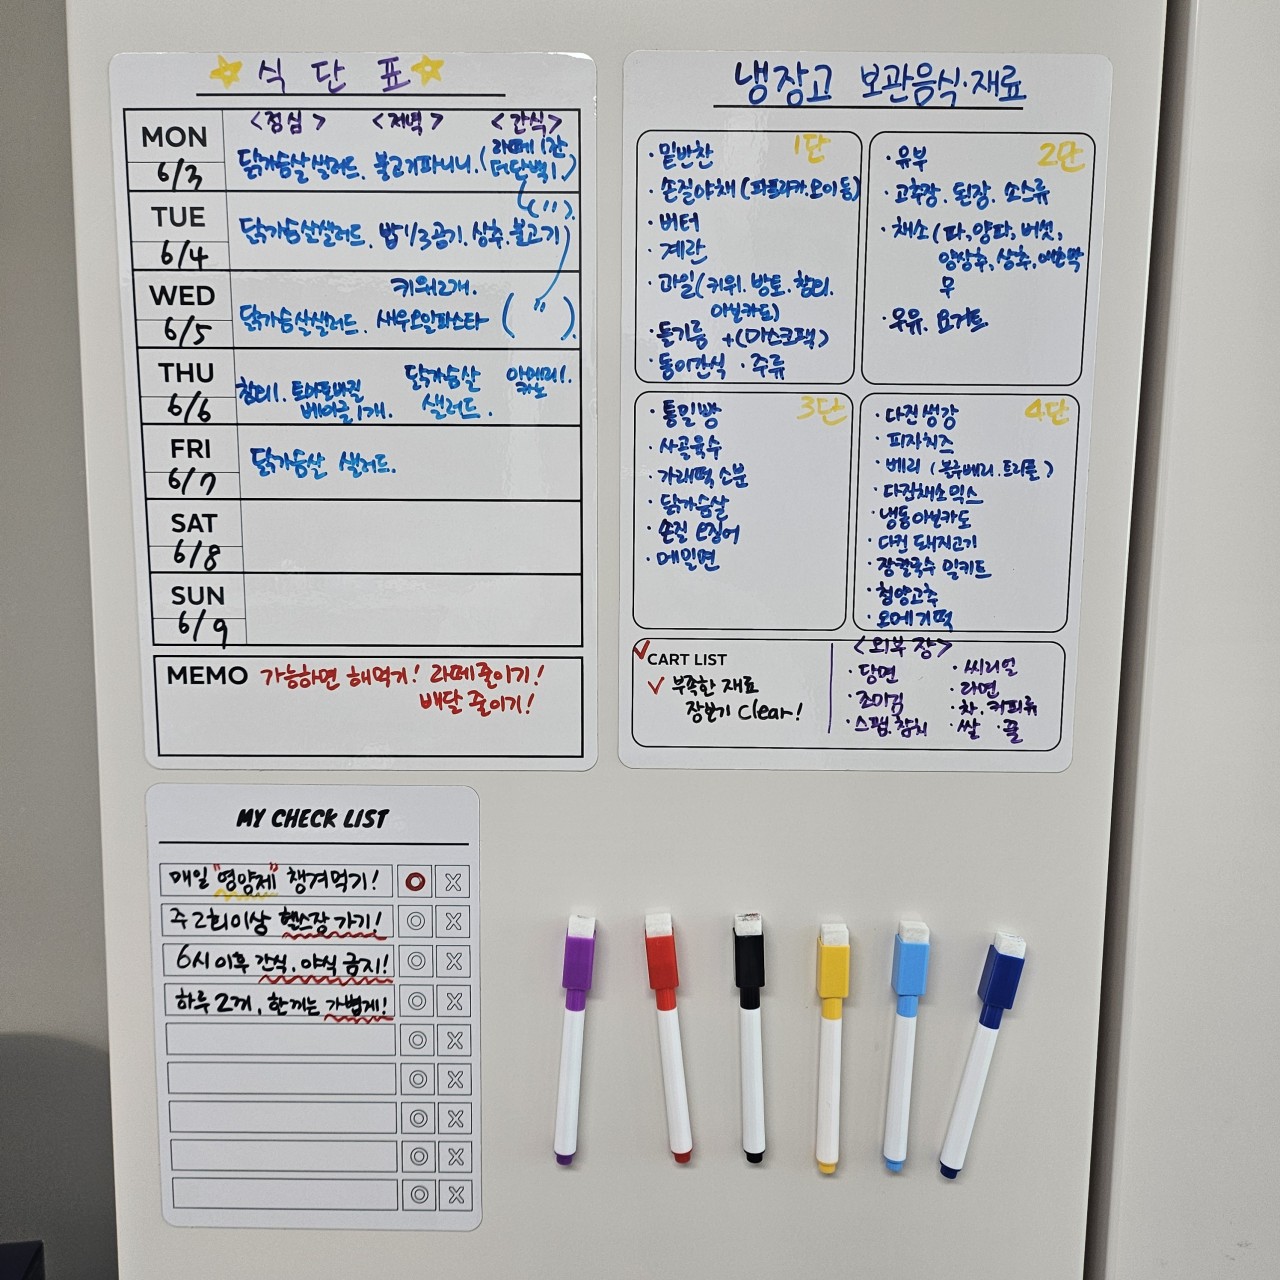 식단표
<점심> <저녁> <간식>
MON
6/3
닭가슴살샐러드. 불고기파니니. (라떼 1잔 더단백1.)
TUE
6/4
닭가슴살샐러드. 밥 1/3공기. 상추. 불고기
( " ).
WED
6/5
키위2개.
닭가슴살샐러드. 새우오일파스타 ( " ).
THU
6/6
참외1. 토마토바질
베이글1개.
닭가슴살
샐러드.
아메리
카노 1.
FRI
6/7
닭가슴살 샐러드.
SAT
6/8
SUN
6/9
MEMO 가능하면 해먹기! 라떼줄이기!
배달 줄이기!
냉장고 보관음식·재료
1단
· 밑반찬
· 손질야채 (파프리카.오이 등)
· 버터
· 계란
· 과일(키위. 방토. 참외.
아보카도)
· 들기름 +(마스크팩)
· 동이간식 · 주류
2단
· 유부
· 고추장. 된장. 소스류
· 채소 (파,양파,버섯,
양상추, 상추,
무
· 우유. 요거트
3단
· 통밀빵
· 사골육수
· 가래떡 소분
· 닭가슴살
· 손질 오징어
· 메밀면
4단
· 다진생강
· 피자치즈
· 베리 (블루베리.트리플)
· 다짐채소믹스
· 냉동아보카도
· 다진 돼지고기
· 장칼국수 밀키트
· 청양고추
· 오메기떡
CART LIST
부족한 재료
장보기 Clear!
<외부 장>
· 당면
· 조미김
· 스팸.참치
· 씨리얼
· 라면
· 차. 커피류
· 쌀 · 꿀
MY CHECK LIST
매일 "영양제" 챙겨먹기!
주 2회이상 헬스장 가기!
6시 이후 간식. 야식 금지!
하루 2끼, 한끼는 가볍게!